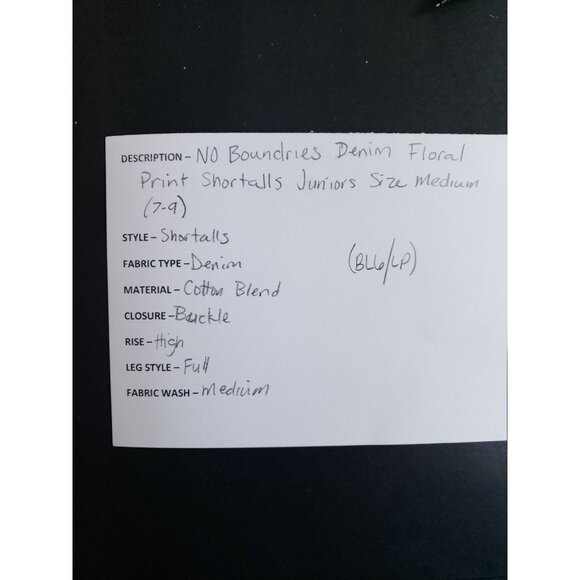 DESCRIPTION – NO Boundries Denim Floral
Print Shortalls Juniors Size Medium
(7-9)
STYLE – Shortalls
FABRIC TYPE – Denim
(BL6/LP)
MATERIAL – Cotton Blend
CLOSURE – Buckle
RISE – High
LEG STYLE – Full
FABRIC WASH – Medium